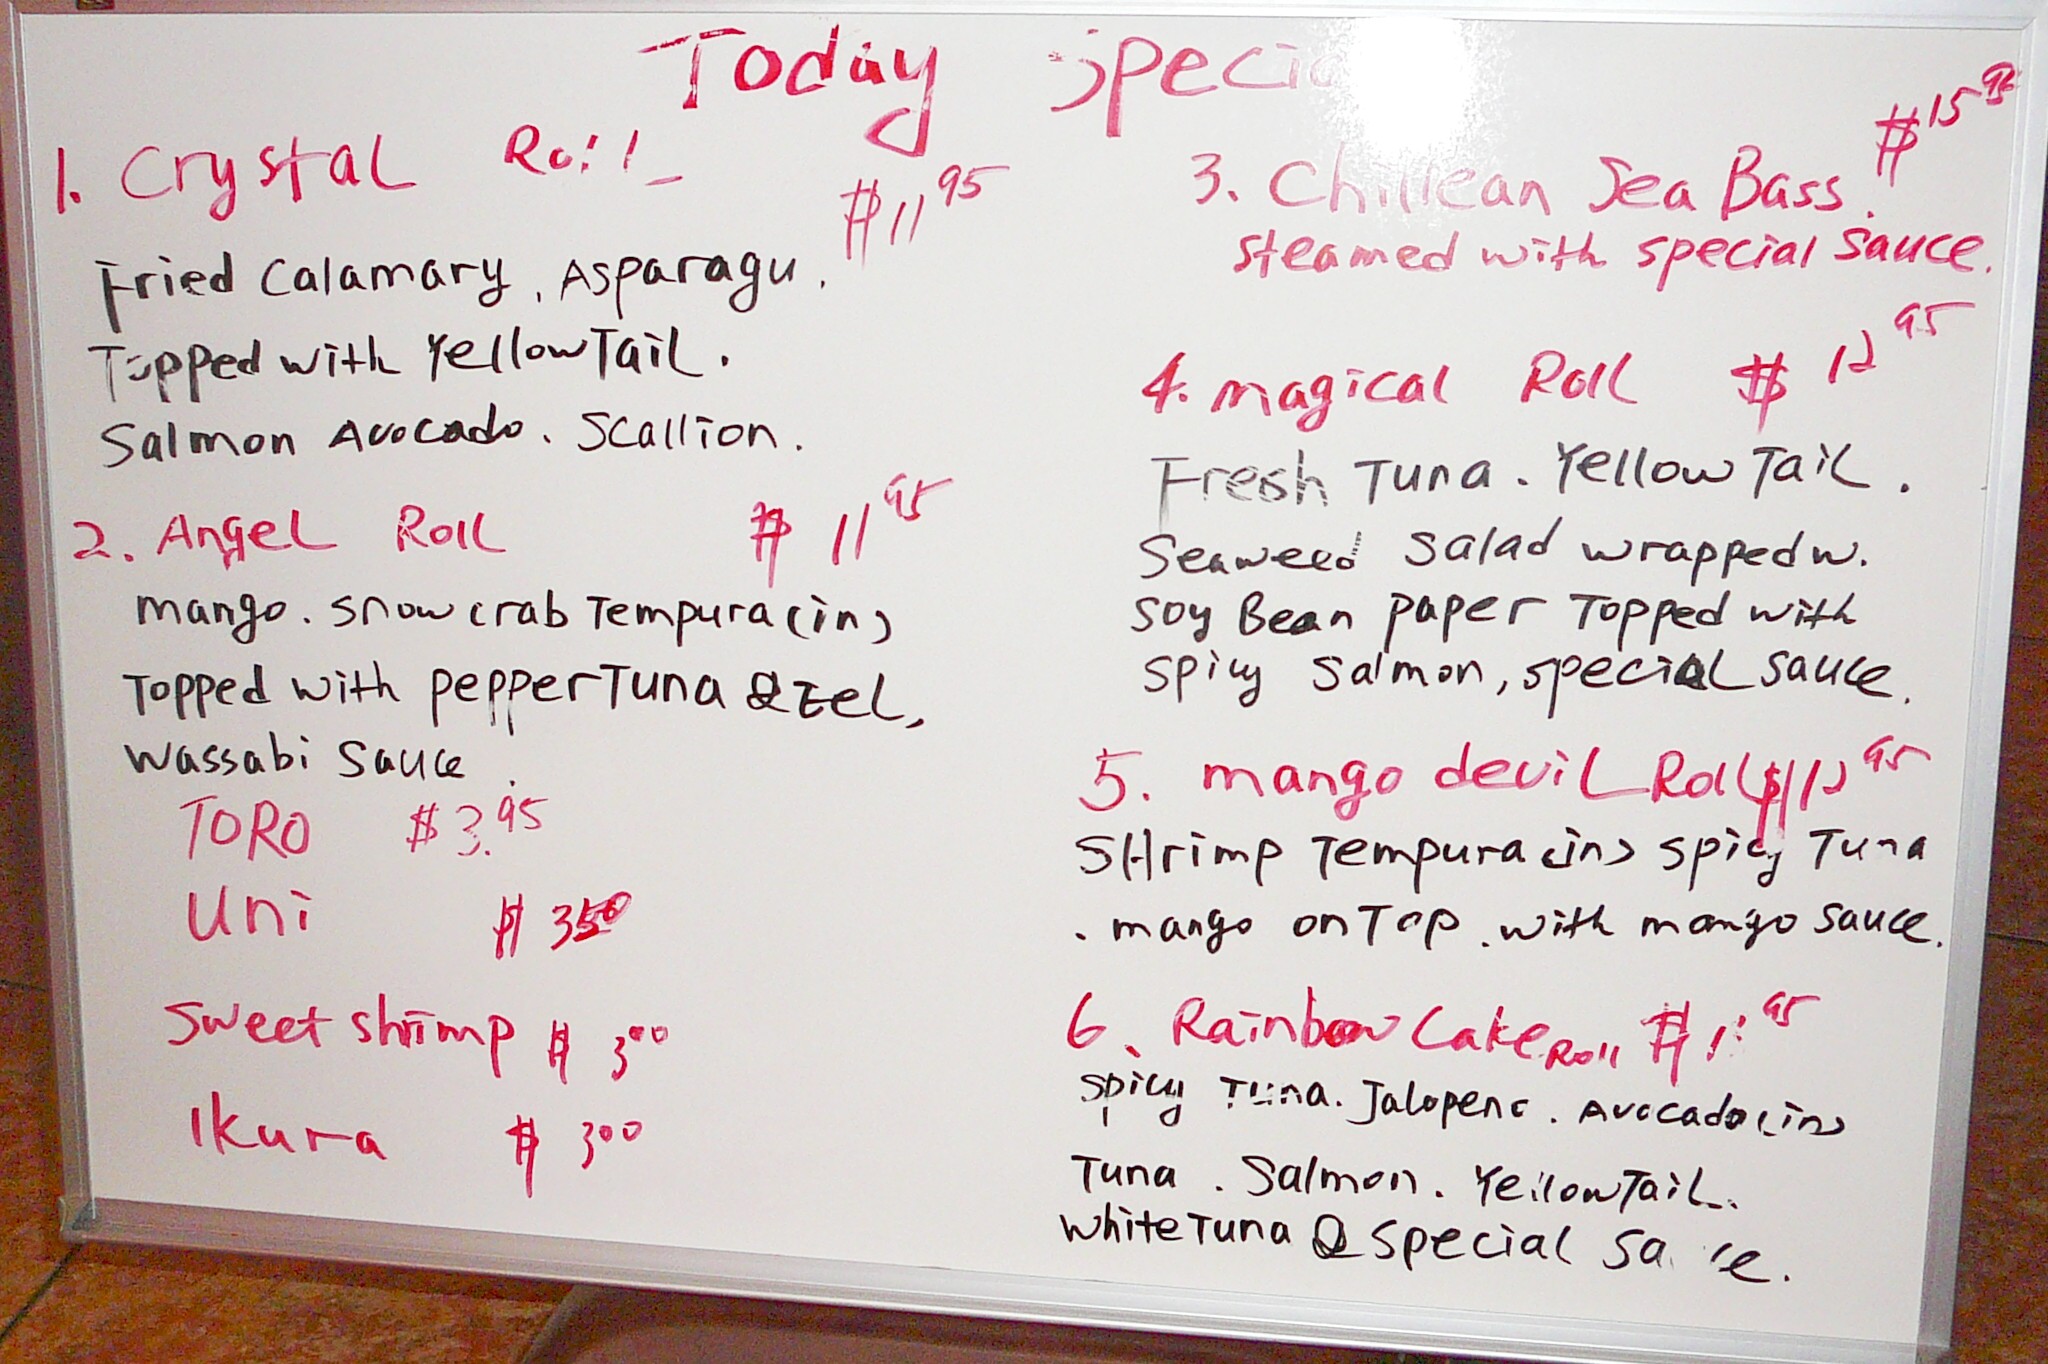 Today Special
1. Crystal Roll $11 95
Fried Calamary, Asparagu.
Topped with Yellow Tail.
Salmon Avocado. Scallion.
2. Angel Roll $11 95
mango. snow crab Tempura (in)
Topped with pepper Tuna & Eel,
Wassabi Sauce.
TORO $3.95
Uni $350
Sweet shrimp $300
Ikura $300
3. Chillean Sea Bass. $15 95
steamed with special sauce.
4. magical Roll $12 95
Fresh Tuna. Yellow Tail.
Seaweed Salad wrapped w.
Soy Bean paper Topped with
Spicy Salmon, special sauce.
5. mango devil Roll $12 95
SHrimp Tempura (in) spicy Tuna
. mango on Top. with mango sauce.
6. Rainbow Cake Roll
Spicy Tuna. Jalopeno. Avocado (in)
Tuna. Salmon. Yellow Tail.
White Tuna & Special Sauce.